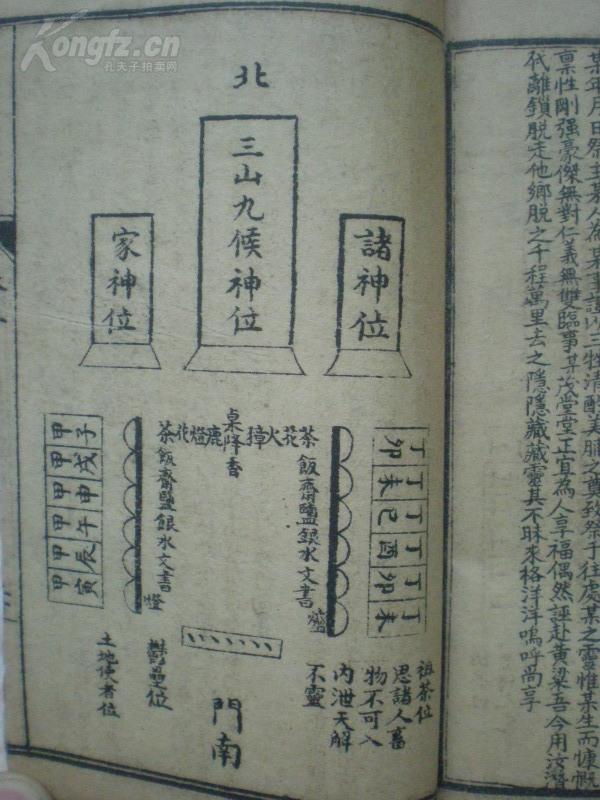 Kongfz.cn
孔夫子拍卖网
某年月日祭主某人為某事謹以三牲清醴美脯之奠致祭于往處某之靈惟某生而慷慨
稟性剛强豪傑無對仁義無雙臨事其茂堂堂正宜為人享福偶然誣赴黄粱吾今用汝潛
代離鎖脱走他鄉脱之千程萬里去之隱隱藏藏靈其不昧來格洋洋嗚呼尚享
北
諸神位
三山九候神位
家神位
茶花火獐
桌降香
鹿燈花茶
丁卯
丁未
丁巳
丁酉
丁卯
丁未
飯齋鹽銀水文書燈
飯齋鹽銀水文書燈
甲子
甲戌
甲申
甲午
甲辰
甲寅
祖茶位
思諸人畜
物不可入
内泄天解
不靈
門南
之位
土地使者位